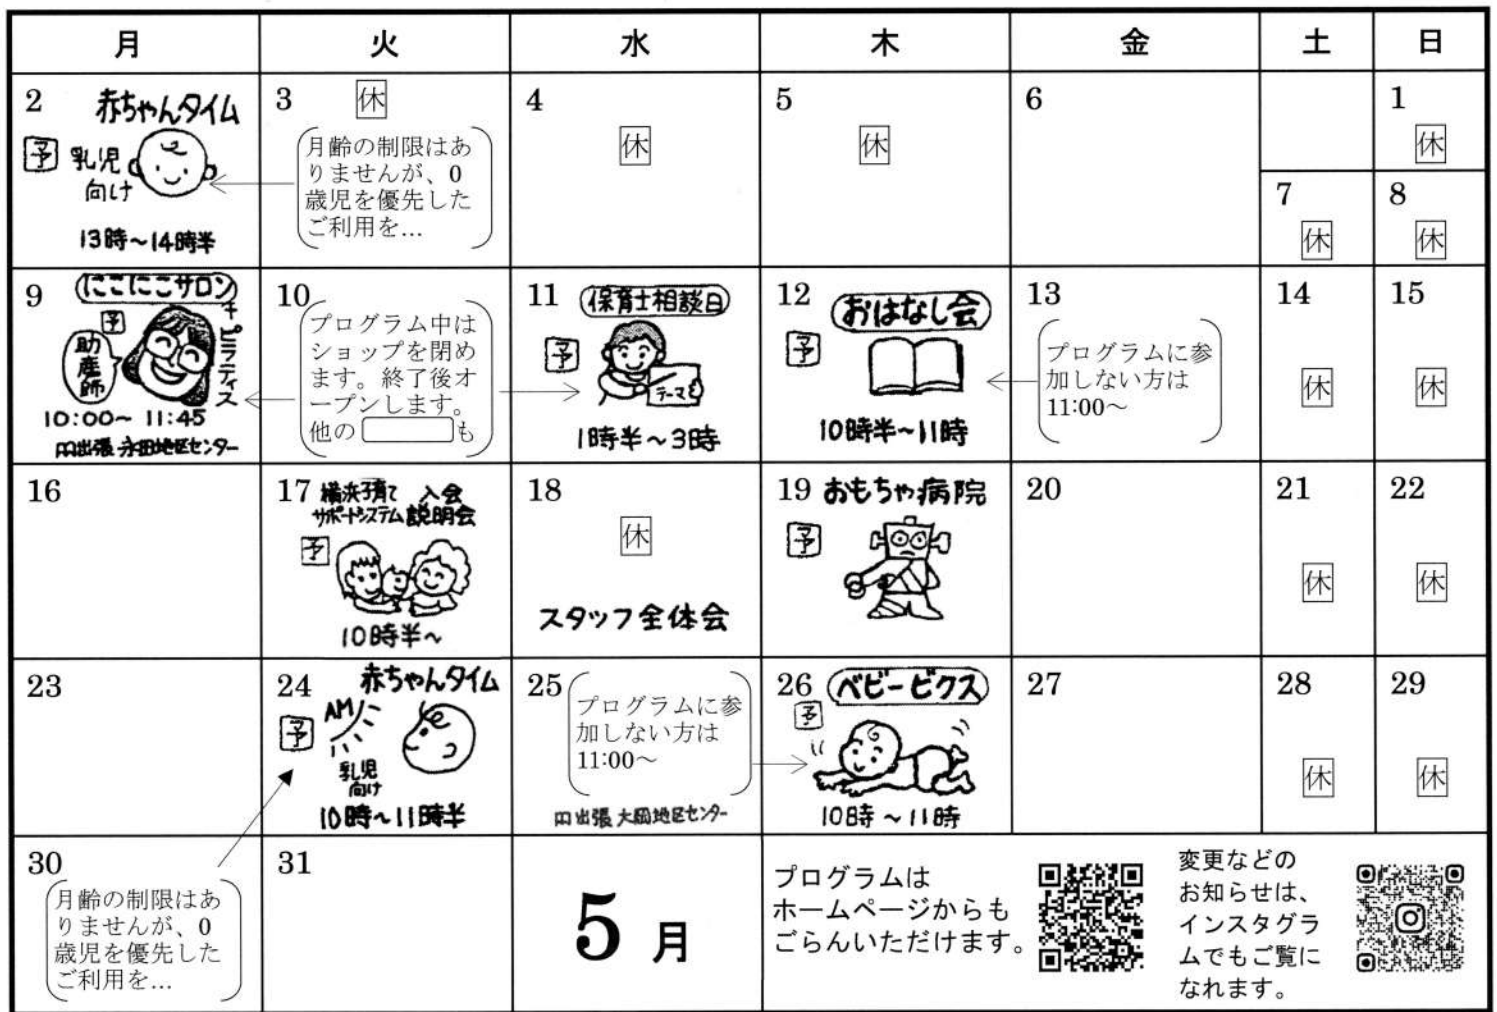 月 火 水 木 金 土 日
2 赤ちゃんタイム
予 乳児
向け
13時～14時半
3 休
月齢の制限はあ
りませんが、0
歳児を優先した
ご利用を…
4
休
5
休
6
1
休
7
休
8
休
9 にこにこサロン
+ピラティス
予
助産師
10:00～11:45
出張 永田地区センター
10
プログラム中は
ショップを閉め
ます。終了後オ
ープンします。
他の も
11 保育士相談日
予
テーマ
1時半～3時
12 おはなし会
予
10時半～11時
13
プログラムに参
加しない方は
11:00～
14
休
15
休
16
17 横浜子育て 入会
サポートシステム 説明会
予
10時半～
18
休
スタッフ全体会
19 おもちゃ病院
予
20
21
休
22
休
23
24 赤ちゃんタイム
AM
予
乳児
向け
10時～11時半
25
プログラムに参
加しない方は
11:00～
出張 大岡地区センター
26 ベビービクス
予
10時～11時
27
28
休
29
休
30
月齢の制限はあ
りませんが、0
歳児を優先した
ご利用を…
31
5月
プログラムは
ホームページからも
ごらんいただけます。
変更などの
お知らせは、
インスタグラ
ムでもご覧に
なれます。